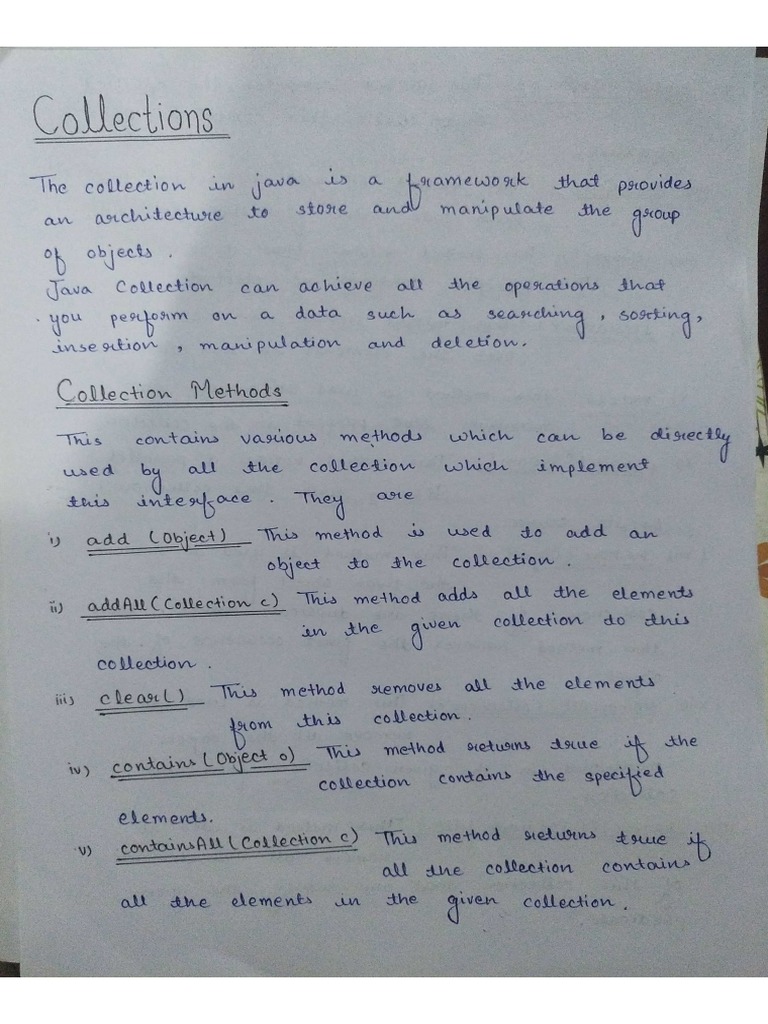 Collections
The collection in java is a framework that provides
an architecture to store and manipulate the group
of objects.
Java Collection can achieve all the operations that
you perform on a data such as searching, sorting,
insertion, manipulation and deletion.
Collection Methods
This contains various methods which can be directly
used by all the collection which implement
this interface. They are
i) add (Object) This method is used to add an
object to the collection.
ii) addAll (Collection c) This method adds all the elements
in the given collection to this
collection.
iii) clear() This method removes all the elements
from this collection.
iv) contains (Object o) This method returns true if the
collection contains the specified
elements.
v) containsAll (Collection c) This method returns true if
all the collection contains
all the elements in the given collection.